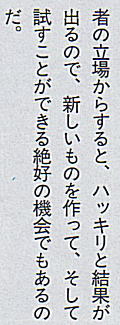 者の立場からすると、ハッキリと結果が
出るので、新しいものを作って、そして
試すことができる絶好の機会でもあるの
だ。